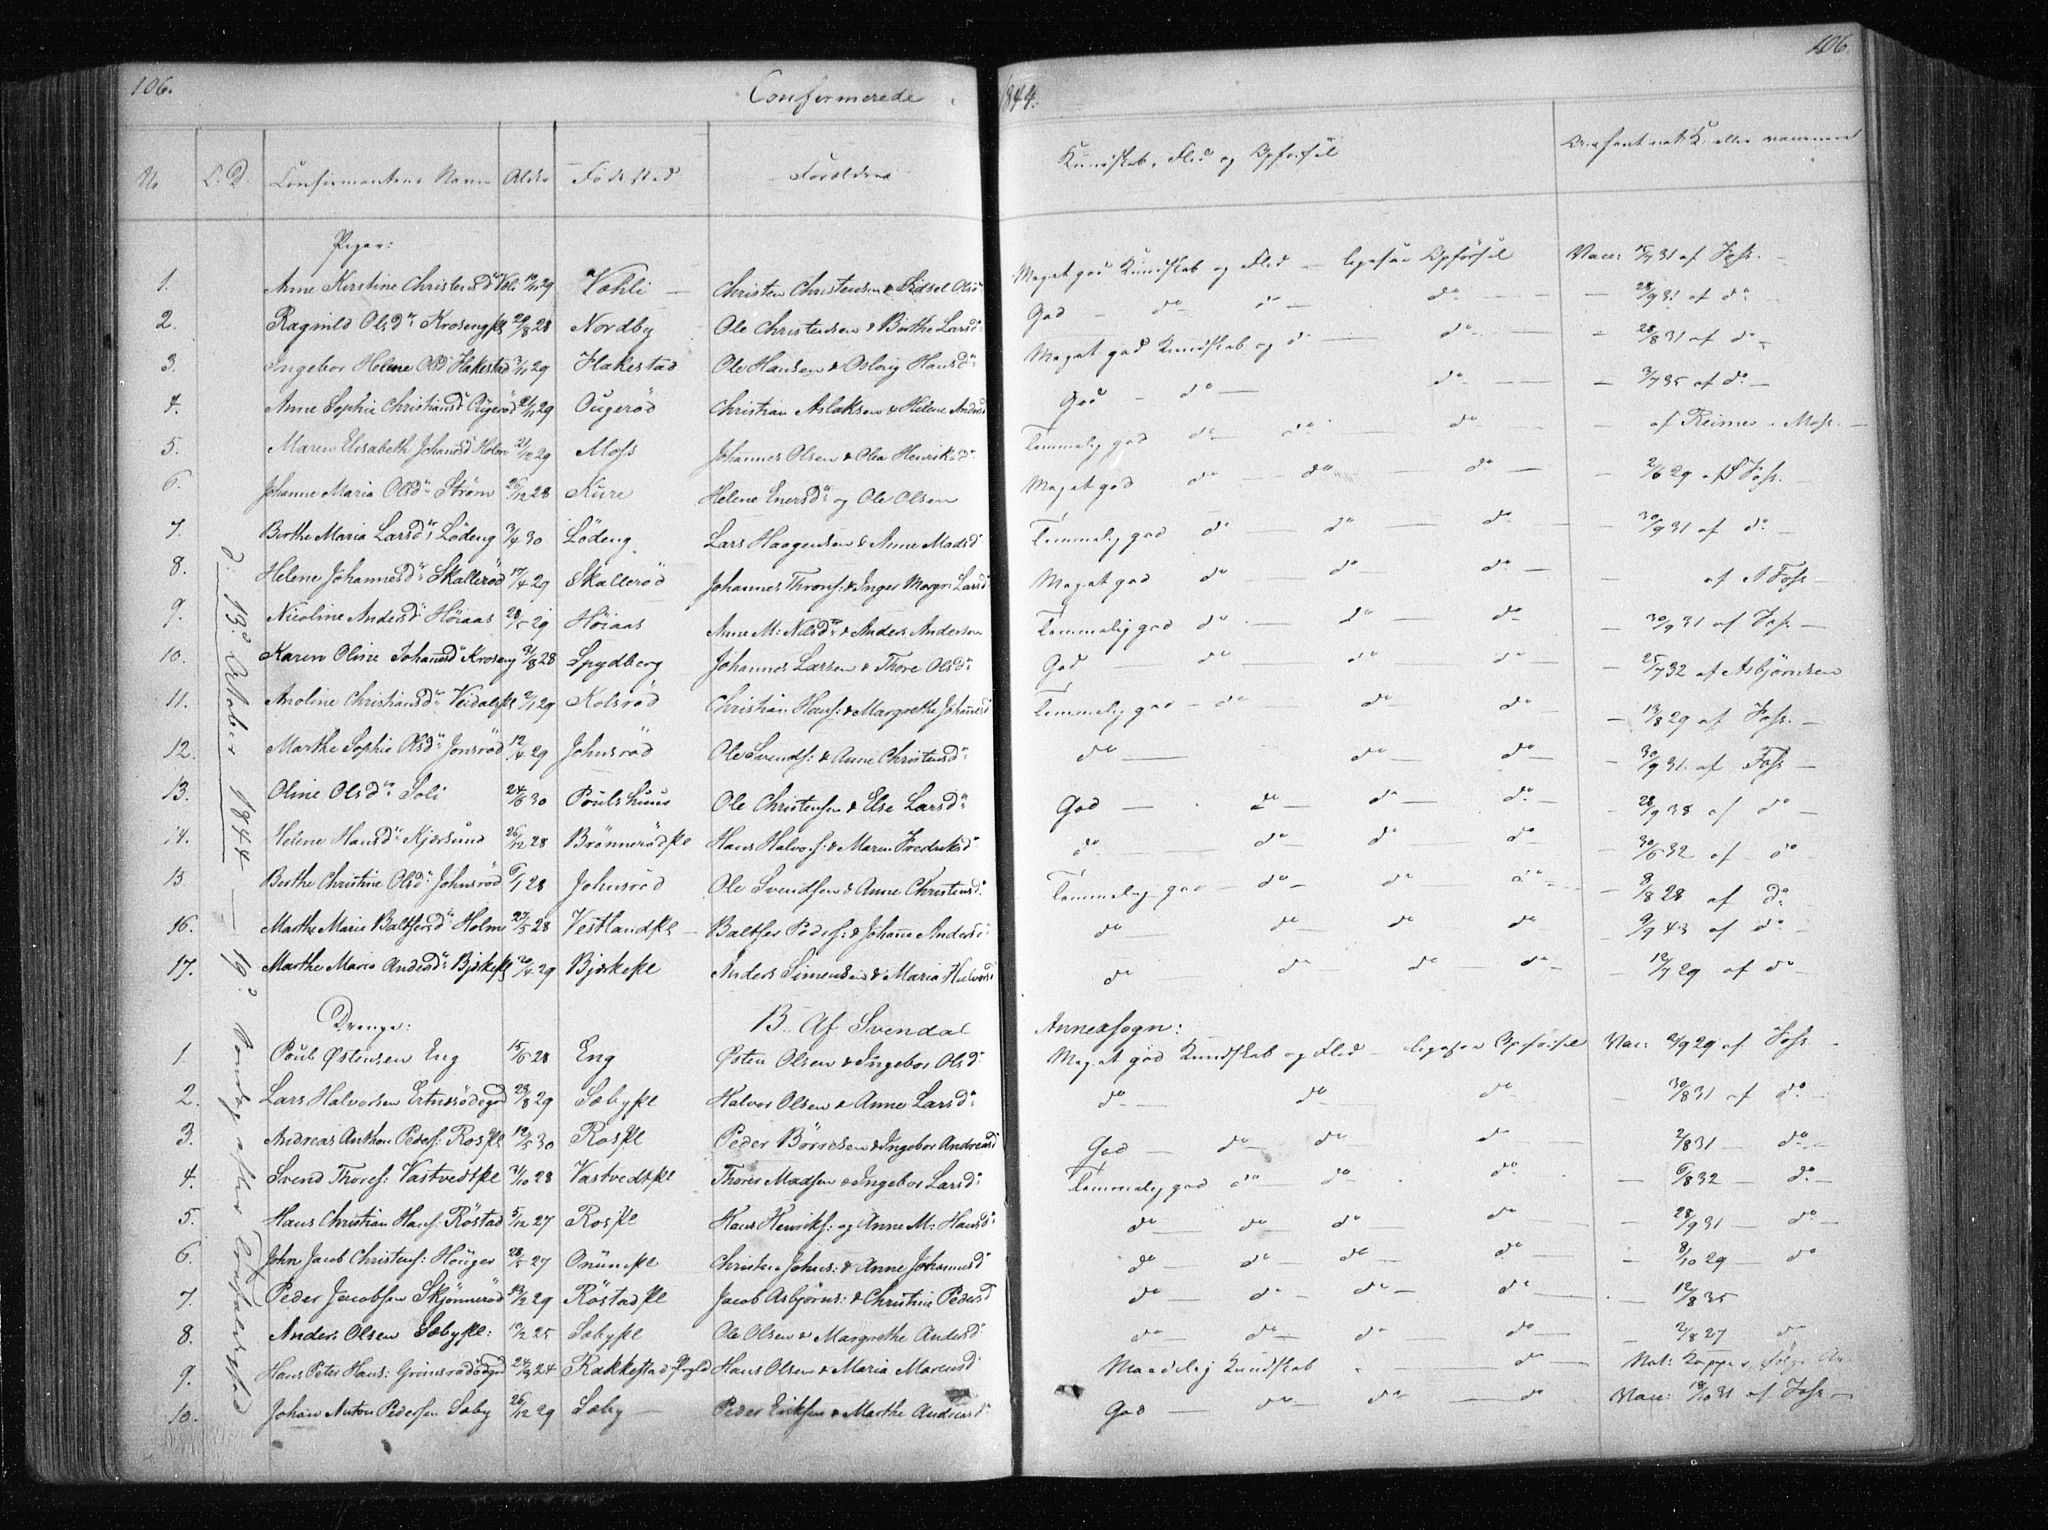 106. Confirmerede 1844. 106.
No C. D. Confirmantens Navn Alder Fødested Forældrene Kundskab, Flid og Opførsel
Piger:
1. Anne Kirstine Christensdr Væli 29 Væhli Christen Christensen & Sidsel Olsd Meget god Kundskab og Flid – ligesaa Opførsel Vacc: 31 af Foss. –
2. Ragnild Olsdr 29/8 28 Nordby Ole Christensen & Birthe Larsd: God – do do – do – – 28/9 31 af do
3. Ingebor Helene Olsd Hakestad 3/11 29 Hakestad Ole Hansen & Asloug Hansdr Meget god Kundskab og d – do – – 28/8 31 af do –
4. Anne Sophie Christiansd Ougerød 29 Ougerød Christian Aslaksen & Helene Andersd God – do – do – – 3/7 35 af do –
5. Maren Elisabeth Johansd Holm 21/12 29 Moss Johannes Olsen & Olea Henriksd: Temmelig god do – do do – – af Reimers Moss. –
6. Johanne Maria Olsdr Strøm 26/12 28 Kure Helene Enersdr og Ole Olsen Meget god do – do – do – – 2/6 29 af Foss. –
7. Birthe Maria Larsdr Lødeng 3/4 30 Lødeng Lars Haagensen & Anne Madsd Temmelig god do – do – do – 30/9 31 af do –
8. Helene Johannesdr Skallerød 17/4 29 Skallerød Johannes Throns: & Inger Margr: Larsd Meget god do do – do – – af Foss –
9. Nicoline Andersd Høiaas 28/5 29 Høiaas Anne M: Nilsdr & Anders Anderson Temmelig god do – do – do – 30/9 31 af Foss –
10. Karen Oline Johansd Kroseng 31/8 28 Spydberg Johannes Larsen & Thore Olsdr God – do do do – 25/7 32 af Asbjørnsen
11. Anoline Christiansdr Veidalspl 2/1 29 Kolsrød Christian Hans: & Margrethe Johannesd Temmelig god – do do do – 13/8 29 af Foss. –
12. Marthe Sophie Olsdr Jonsrød 12/4 29 Johnsrød Ole Svends: & Anne Christensdr do – do do – 30/9 31 af Foss –
13. Oline Olsdr Soli 24/6 30 Poulshuus Ole Christensen & Else Larsdr God – do – do – do – 28/9 38 af do
14. Helene Hansdr Kjærsund 26/12 28 Brønnerødpl Hans Halvors: & Maren Frederiksd do – do do do – 30/6 32 af – do
15. Birthe Christine Olsd Johnsrød 6/1 28 Johnsrød Ole Svendsen & Anne Christensd: Temmelig god – do – do do – 8/8 28 af do
16. Marthe Marie Baltsersdr Holm 27/5 28 Vestlandpl – Baltser Peders: & Johanne Andersd: do – do do do – 9/9 43 af do
17. Marthe Maria Andersdr Bjerkepl 20/4 29 Bjerkepl Anders Simensen & Maria Halvorsd do do do – do – 12/7 29 af do –
d: 13d October 1844 – 19d
Drenge: B. Af Svendal Annexsogn:
1. Poul Østensen Eng 15/6 28 Eng Østen Olsen & Ingebor Olsd Meget god Kundskab og Flid – ligesaa Opførsel Vac: 2/9 29 af Foss
2. Lars Halvorsen 29/8 29 Sæbypl Halvor Olsen & Anne Larsd: do – do do – 30/8 31 af do –
3. Andreas Anthon Peders: Rospl 12/5 30 Rospl Peder Børresen & Ingebor Andreasd God – do – do do – 2/8 31 – do
4. Svend Thores: Vastvedtpl 31/10 28 Vastvedtpl Thores Madsen & Ingebor Larsd: Temmelig god do – do do – – 6/8 32 – do
5. Hans Christian Hans: Røstad 5/12 27 Rospl Hans Henriks: og Anne M: Hansd: do – do do do – 28/9 31 – do
6. John Jacob Christens: Houger 28/5 27 Onumpl Christen Johns: & Anne Johannesd do – do – do – do – 8/10 29 – do
7. Peder Jacobsen Skjønnerød 13/12 29 Røstadpl Jacob Asbjørns: & Christine Pedersd do – do – do – do – 12/8 35
8. Anders Olsen Sæbypl: 19/2 25 Sæbypl Ole Olsen & Margrethe Andersd do – do – do do – 2/8 27 do
9. Hans Peter Hans: 24 Rakkestad Hans Olsen & Maria Marcusd: Maadelig Kundskab – do – Nat: Kopper,
10. Johan Anton Pedersen Sæby 26/12 29 Sæby – Peder Eriksen & Marthe Andreasd: God – do – do – do Vacc: 18/10 31 af Foss –